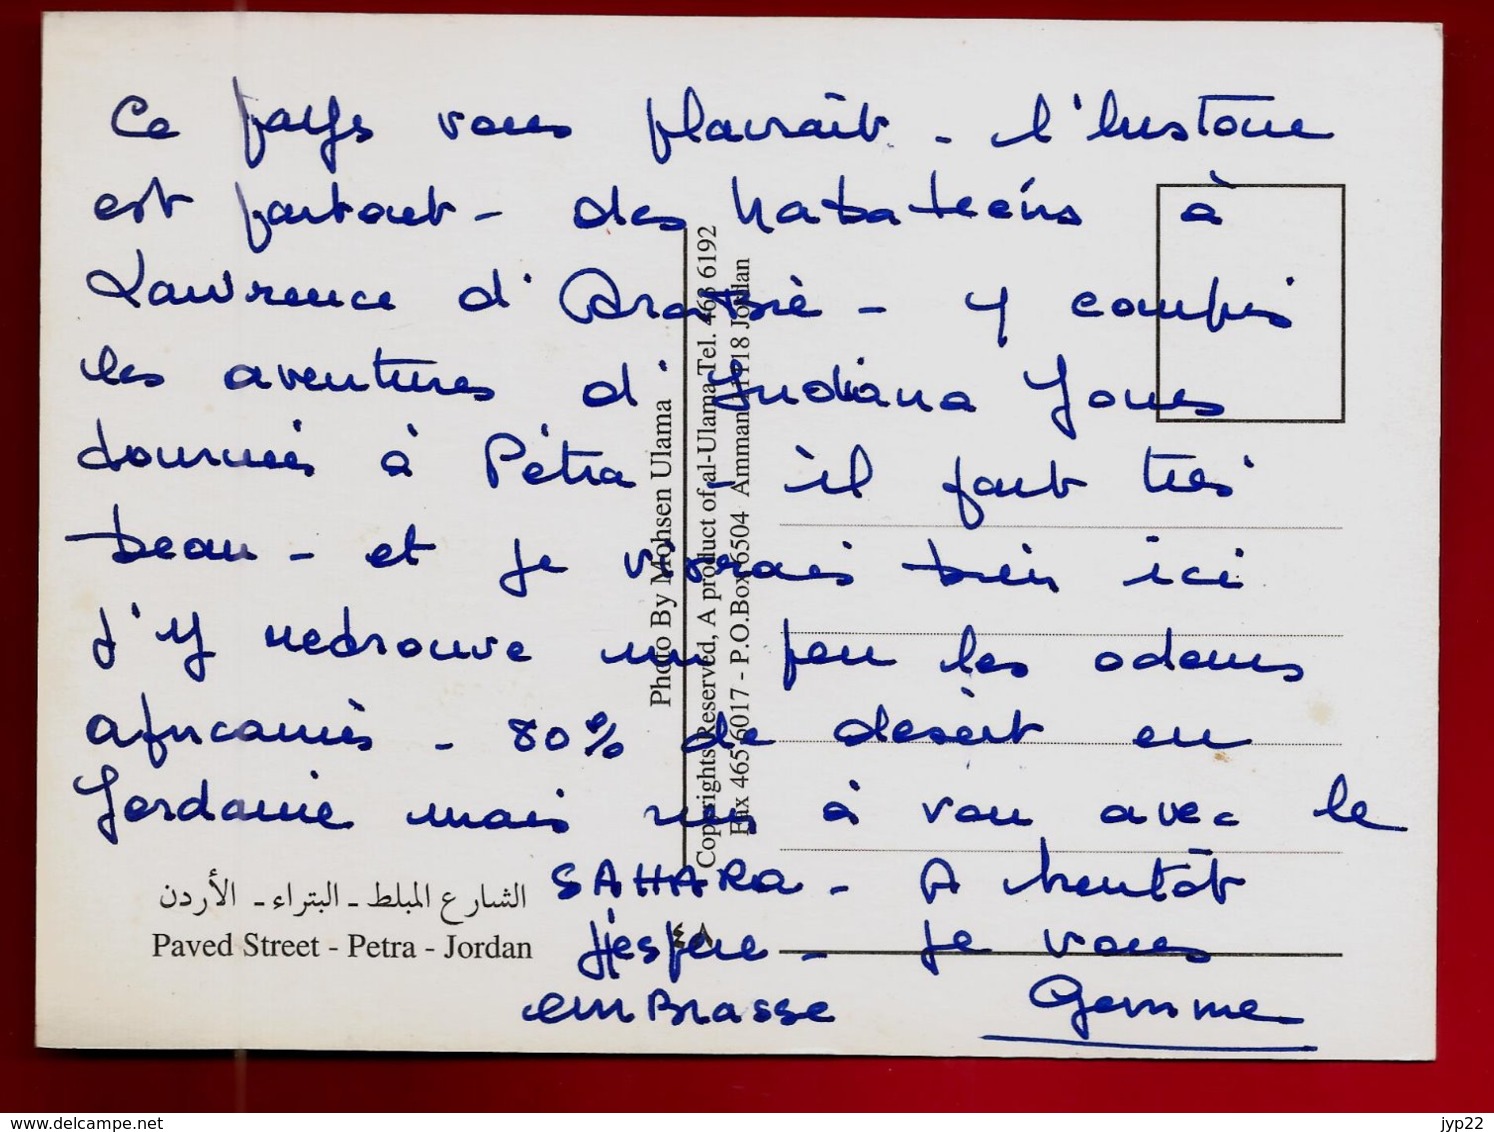 Ce pays vous plairait - l'histoire
est partout - des Nabatéens à
Lawrence d'Arabie - y compris
les aventures d'Indiana Jones
tournées à Pétra - il fait très
beau - et je vivrais bien ici
j'y retrouve un peu les odeurs
africaines - 80% de désert en
Jordanie mais rien à voir avec le
SAHARA - A bientôt
j'espère - je vous
embrasse Gemme
الشارع المبلط - البتراء - الأردن
Paved Street - Petra - Jordan
٤٠٨
Photo By Mohsen Ulama
Copyrights Reserved, A product of al-Ulama Tel. 463 6192
Fax 465 6017 - P.O.Box 6504 Amman 11118 Jordan
www.delcampe.net
jyp22